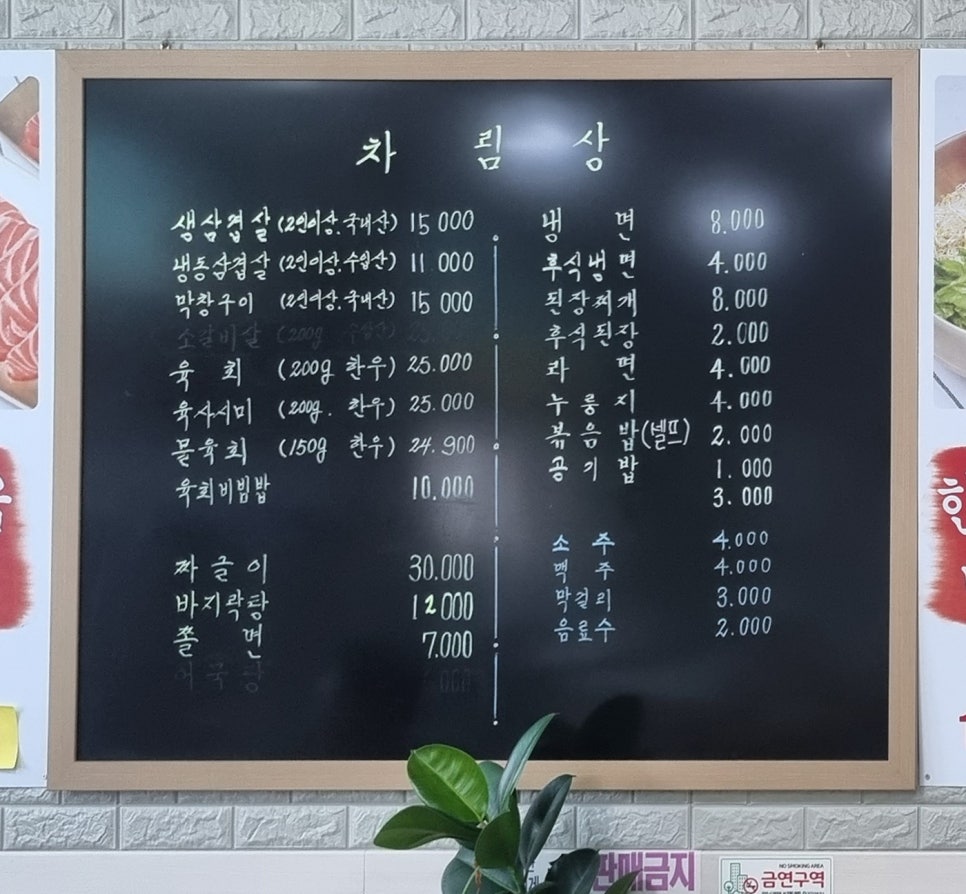 차 림 상
생삼겹살 (2인이상.국내산) 15 000
냉동삼겹살 (2인이상.수입산) 11 000
막창구이 (2인이상.국내산) 15 000
소갈비살 (200g 수입산)
육 회 (200g 한우) 25.000
육사시미 (200g. 한우) 25.000
물육회 (150g 한우) 24.900
육회비빔밥 10.000
짜글이 30.000
바지락탕 12000
쫄 면 7.000
어묵탕
냉 면 8.000
후식냉면 4.000
된장찌개 8.000
후식된장 2.000
라 면 4.000
누룽지 4.000
볶음밥(셀프) 2.000
공기밥 1.000
3.000
소 주 4.000
맥 주 4.000
막걸리 3.000
음료수 2.000
판매금지
NO SMOKING AREA
금연구역